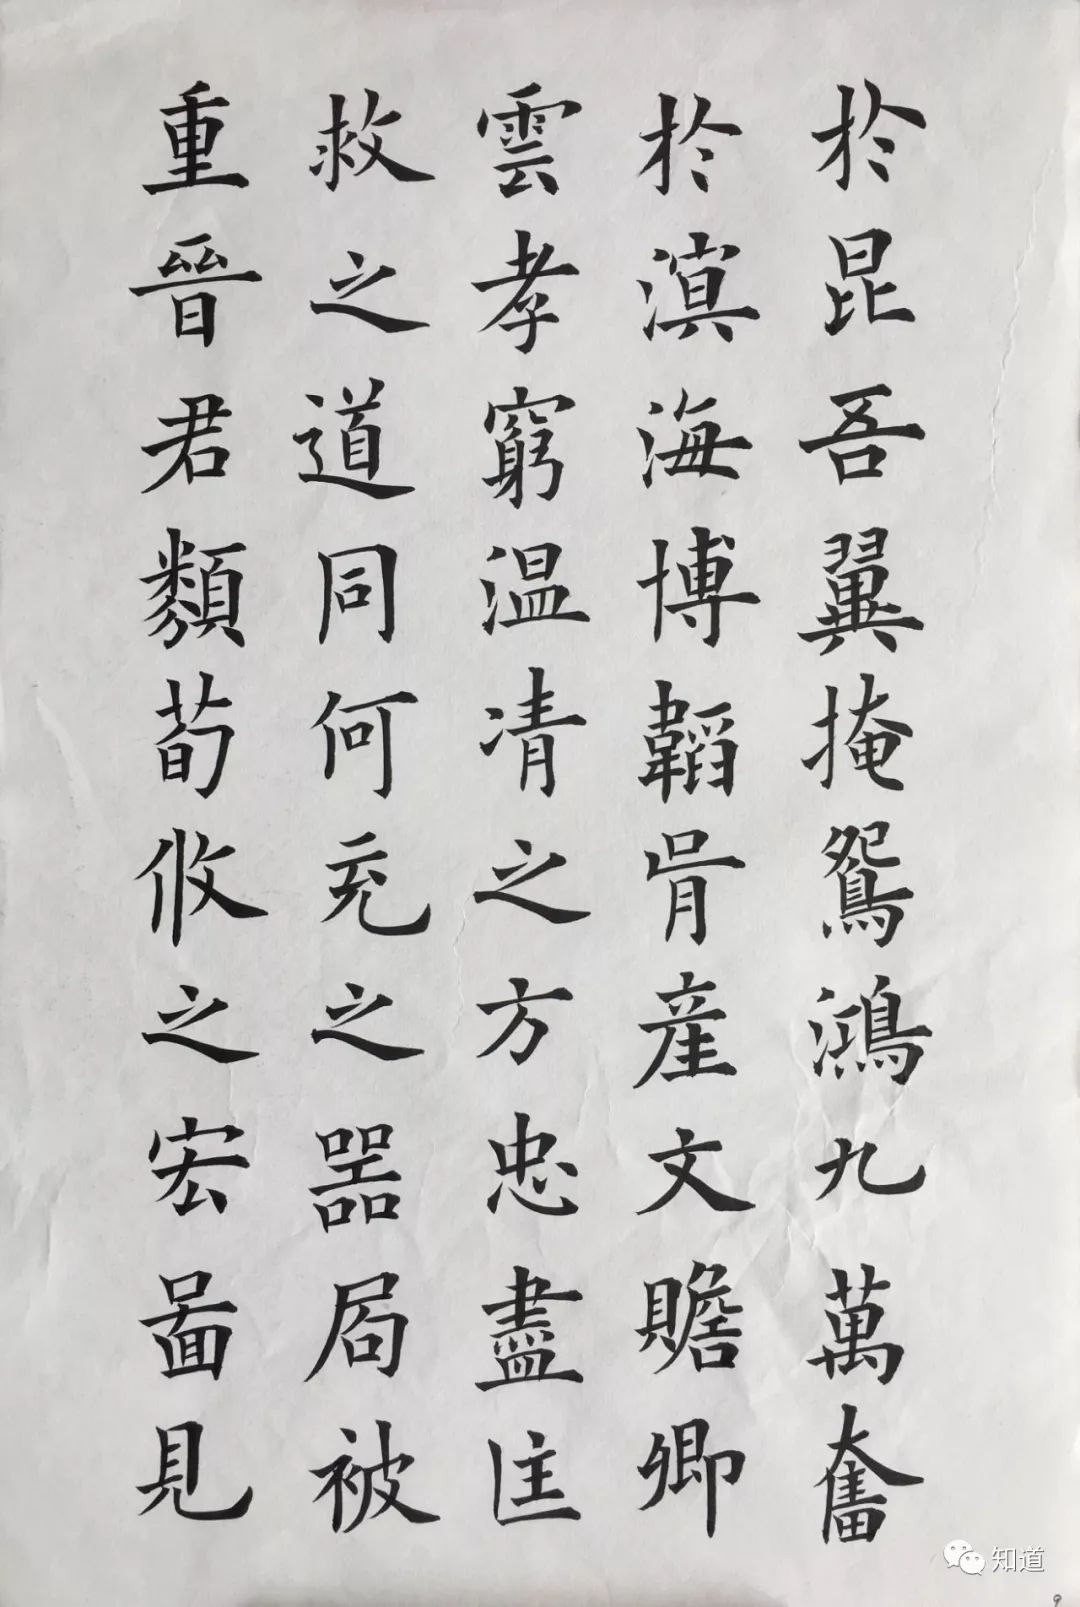 於昆吾翼掩鴛鴻九萬奮
於溟海博韜胄産文贍卿
雲孝窮温凊之方忠盡匡
救之道同何充之器局被
重晉君類荀攸之宏啚見
知道
9